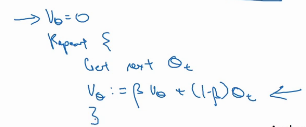 → Vθ = 0
Repeat {
Get next θt
Vθ := β Vθ + (1-β) θt ←
}